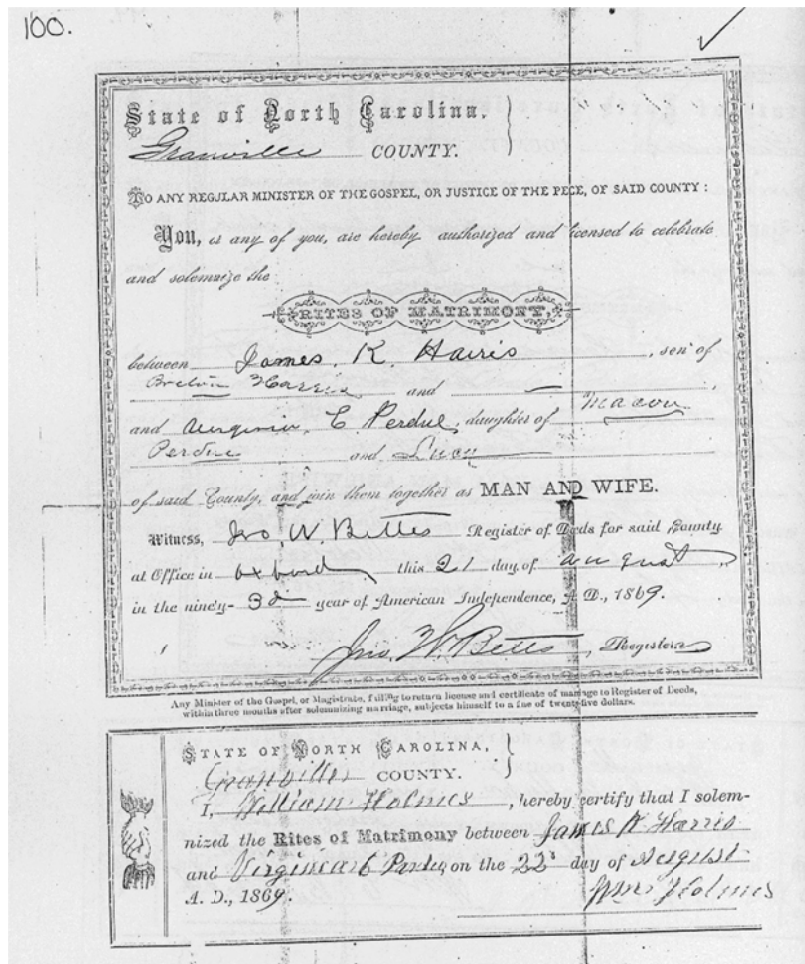 100.
State of North Carolina,
Granville COUNTY.
TO ANY REGULAR MINISTER OF THE GOSPEL, OR JUSTICE OF THE PECE, OF SAID COUNTY:
You, or any of you, are hereby authorized and licensed to celebrate
and solemnize the
RITES OF MATRIMONY,
between James K. Harris, son of
Harris and
and Virginia E Perdue, daughter of Macon
Perdue and Lucy
of said County, and join them together as MAN AND WIFE.
Witness, Jno. W. Betts Register of Deeds for said County
at Office in Oxford this 21 day of August
in the ninety-3d year of American Independence, A. D., 1869.
Jno. W. Betts, Register
Any Minister of the Gospel, or Magistrate, failing to return license and certificate of marriage to Register of Deeds,
within three months after solemnizing marriage, subjects himself to a fine of twenty-five dollars.
STATE OF NORTH CAROLINA,
Granville COUNTY.
I, William Holmes, hereby certify that I solem-
nized the Rites of Matrimony between James K Harris
and Virginia E on the 22d day of August
A. D., 1869. Wm. Holmes